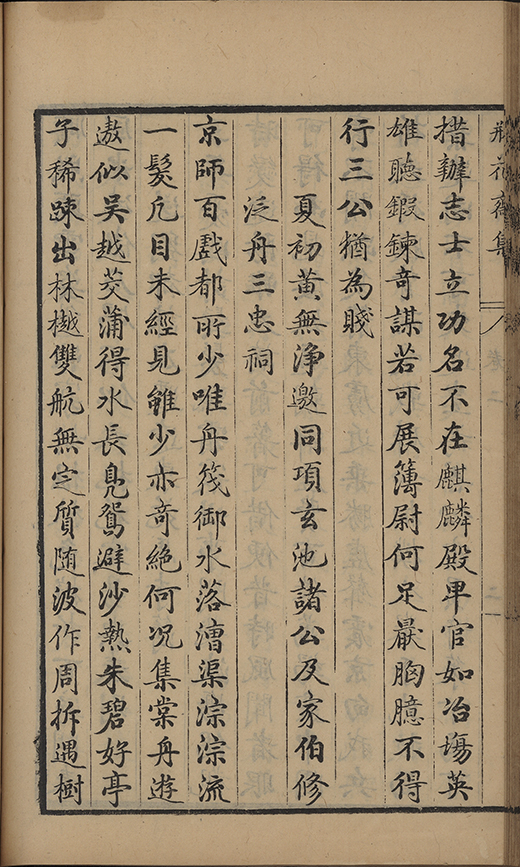 瓶花齋集
卷二
措辦志士立功名不在麒麟殿卑官如冶塲英
雄聽鍜鍊奇謀若可展簿尉何足厭胸臆不得
行三公猶為賤
夏初黄無淨邀同項玄池諸公及家伯修
泛舟三忠祠
京師百戲都所少唯舟筏御水落漕渠淙淙流
一髪凢目未經見雖少亦奇絶何况集棠舟遊
遨似吴越茭蒲得水長鳬鴛避沙熱朱碧好亭
子稀踈出林樾雙航無定質随波作周折遇樹